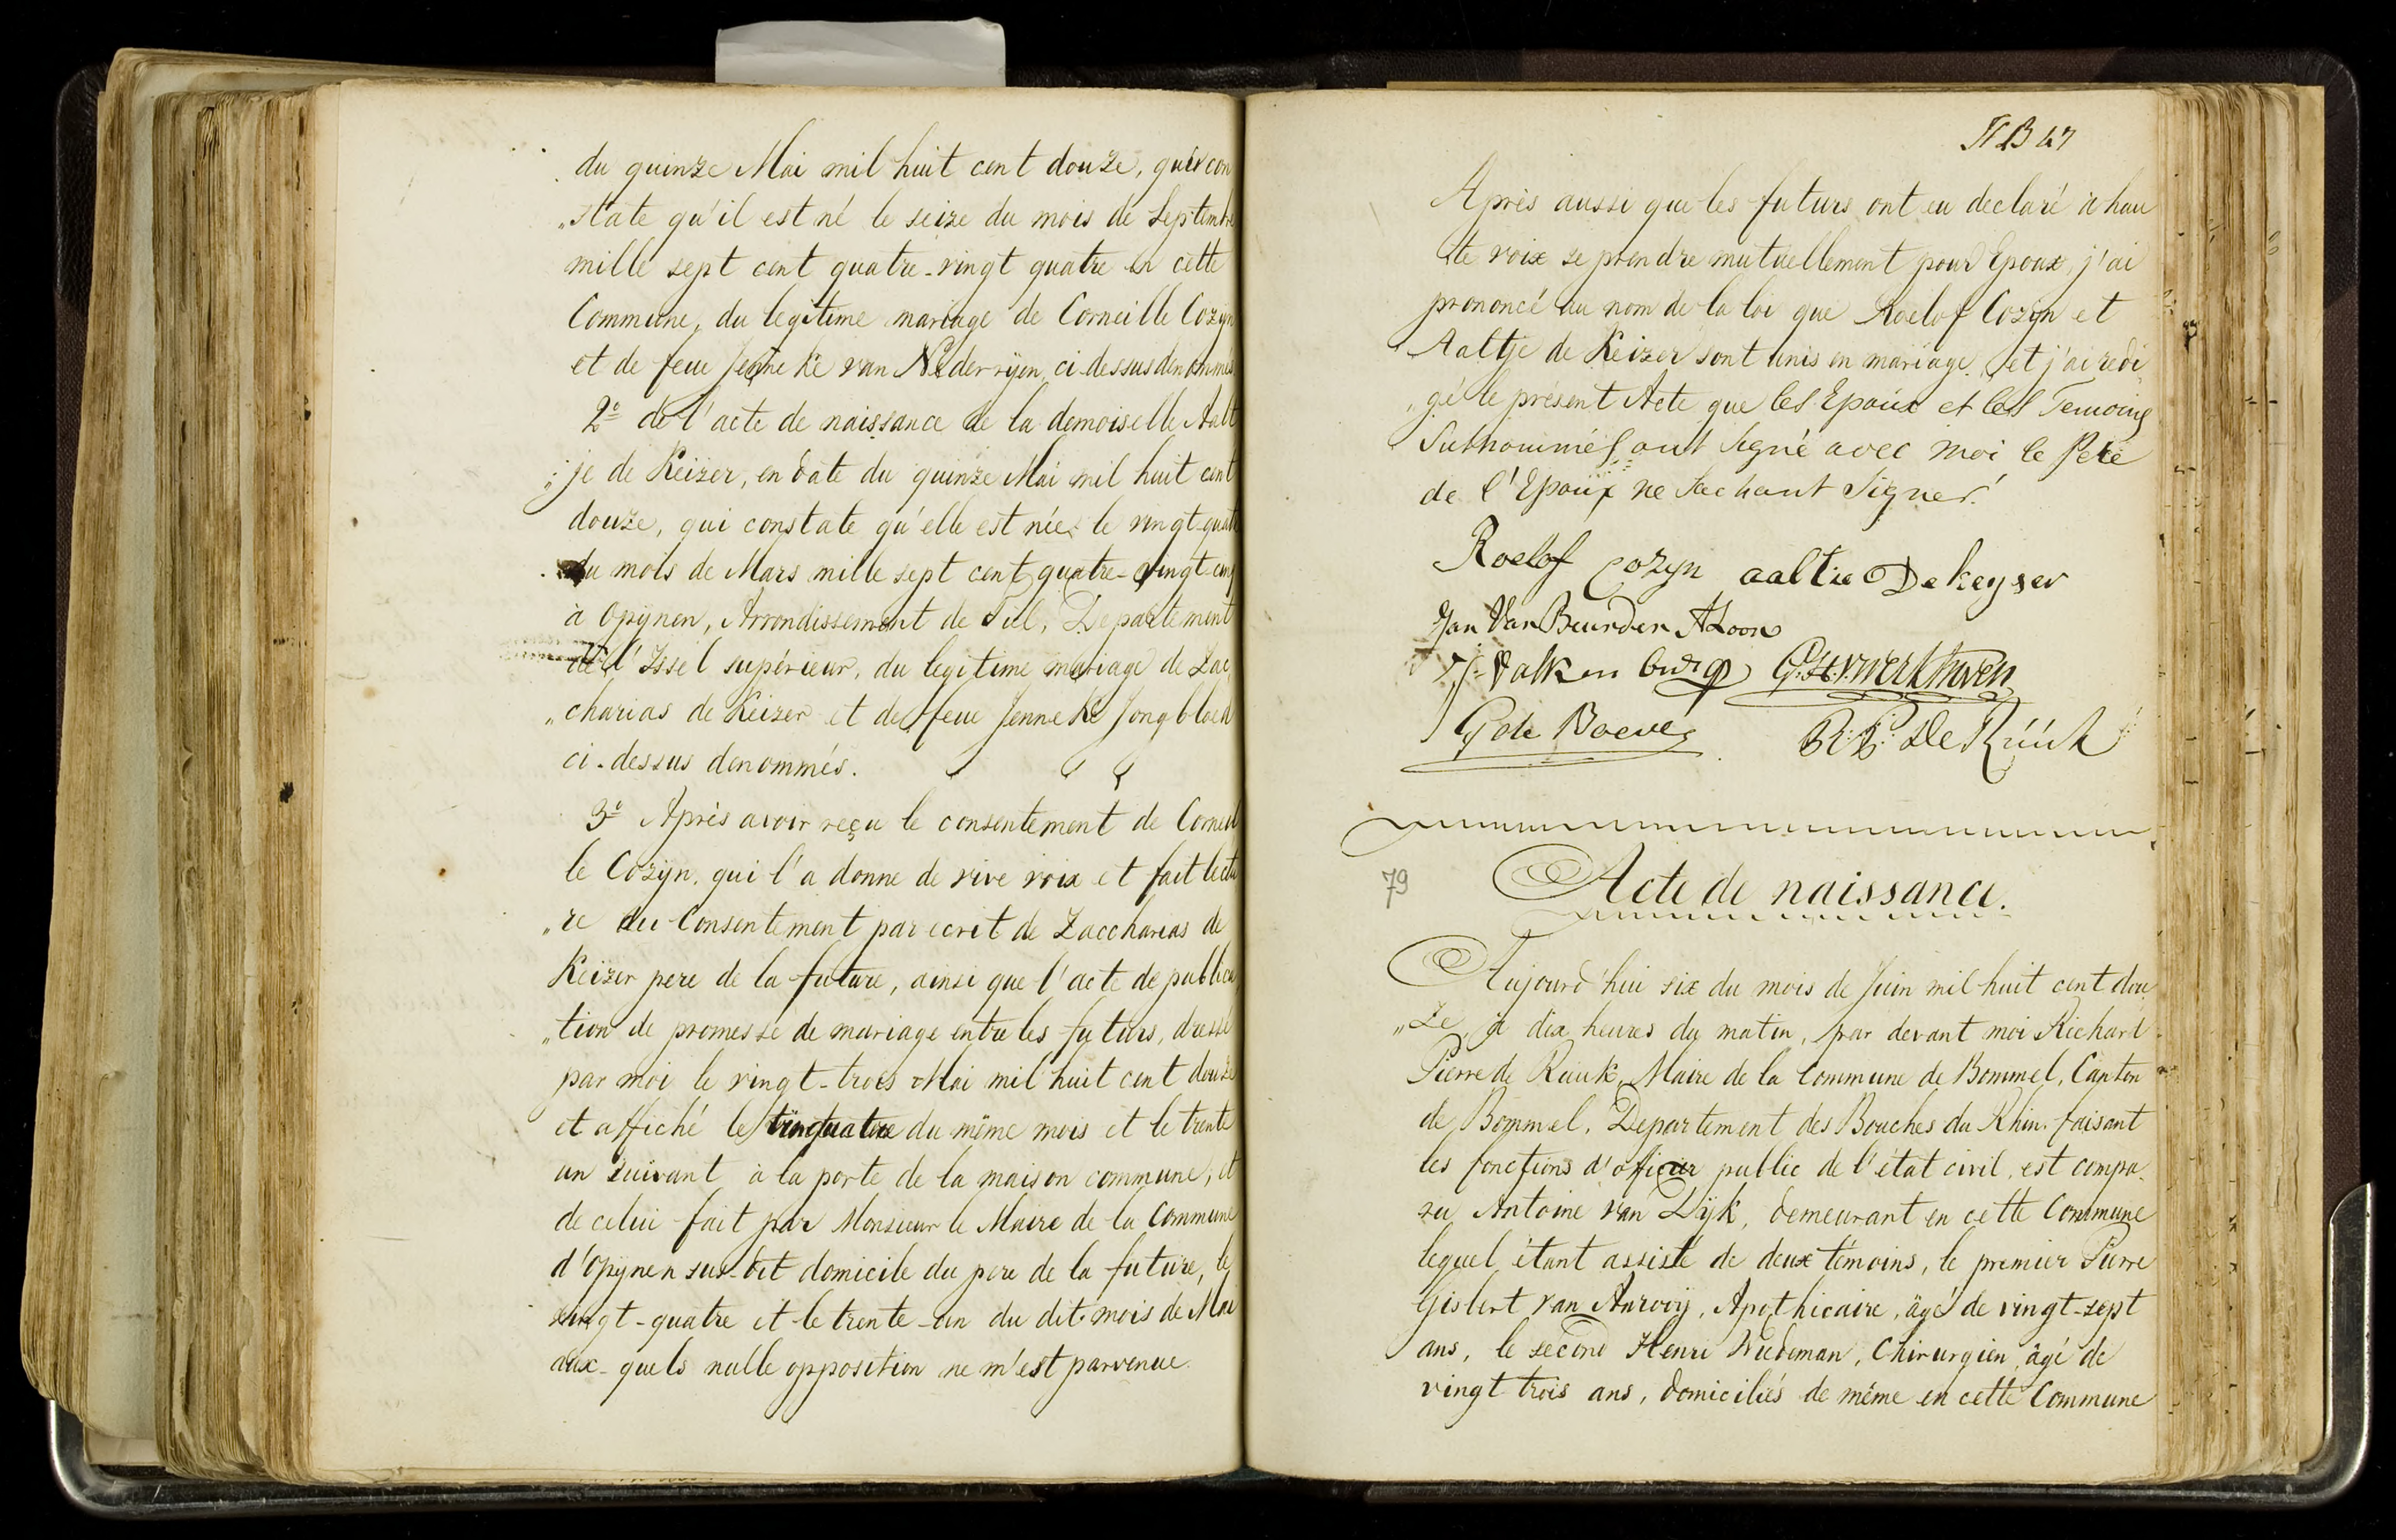 du quinze Mai mil huit cent douze, qui con
„state qu'il est né le seize du mois de Septembre
mille sept cent quatre-vingt quatre en cette
Commune, du legitime mariage de Corneille Cozijn
et de feue Jenneke van Nederrijen, ci-dessus denommés
2º de l'acte de naissance de la demoiselle Aalt
„je de Keizer, en date du quinze Mai mil huit cent
douze, qui constate qu'elle est née le vingt-quatre
du mois de Mars mille sept cent quatre-vingt-cinq
à Opijnen, Arrondissement de Tiel, Departement
de l'Issel supérieur, du legitime mariage de Zac
„charias de Keizer et de feue Jenneke Jongbloed
ci-dessus denommés.
3º Après avoir reçu le consentement de Corneil
le Cozijn, qui l'a donne de vive voix et fait lectu
„re du Consentement par ecrit de Zaccharias de
Keizer pere de la future, ainsi que l'acte de publica
„tion de promesse de mariage entre les futurs, dressé
par moi le vingt-trois Mai mil huit cent douze
et affiché le vingtquatre du même mois et le trente
un suivant à la porte de la maison commune, et
de celui fait par Monsieur le Maire de la Commune
d'Opijnen sus-dit domicile du pere de la future, le
vingt-quatre et le trente-un du dit mois de Mai
aux-quels nulle opposition ne m'est parvenue.
47
Après aussi que les futurs ont eu declaré à hau
te voix se prendre mutuellement pour Epoux, j'ai
prononcé au nom de la loi que Roelof Cozijn et
Aaltje de Keizer sont unis en mariage, et j'ai redi
„gé le présent Acte que les Epoux et les Temoins
Susnommés ont Signé avec moi le Pere
de l'Epoux ne Sachant Signer.
Roelof Cozyn aaltie De keyser
Jan Van Beurden A Loon
Valkenburg
G de Boeve R: P: De Rúúk
79
Acte de naissance.
Aujourd'hui six du mois de Juin mil huit cent dou
„ze, à dix heures du matin, par devant moi Richard
Pierre de Ruuk, Maire de la Commune de Bommel, Canton
de Bommel, Departement des Bouches du Rhin, faisant
les fonctions d'officier public de l'état civil, est compa-
ru Antoine van Dijk, demeurant en cette Commune
lequel étant assisté de deux témoins, le premier Pierre
Gisbert van Anrooij, Apothicaire, âgé de vingt-sept
ans, le second Henri Wiedeman, Chirurgien, âgé de
vingt trois ans, domiciliés de même en cette Commune